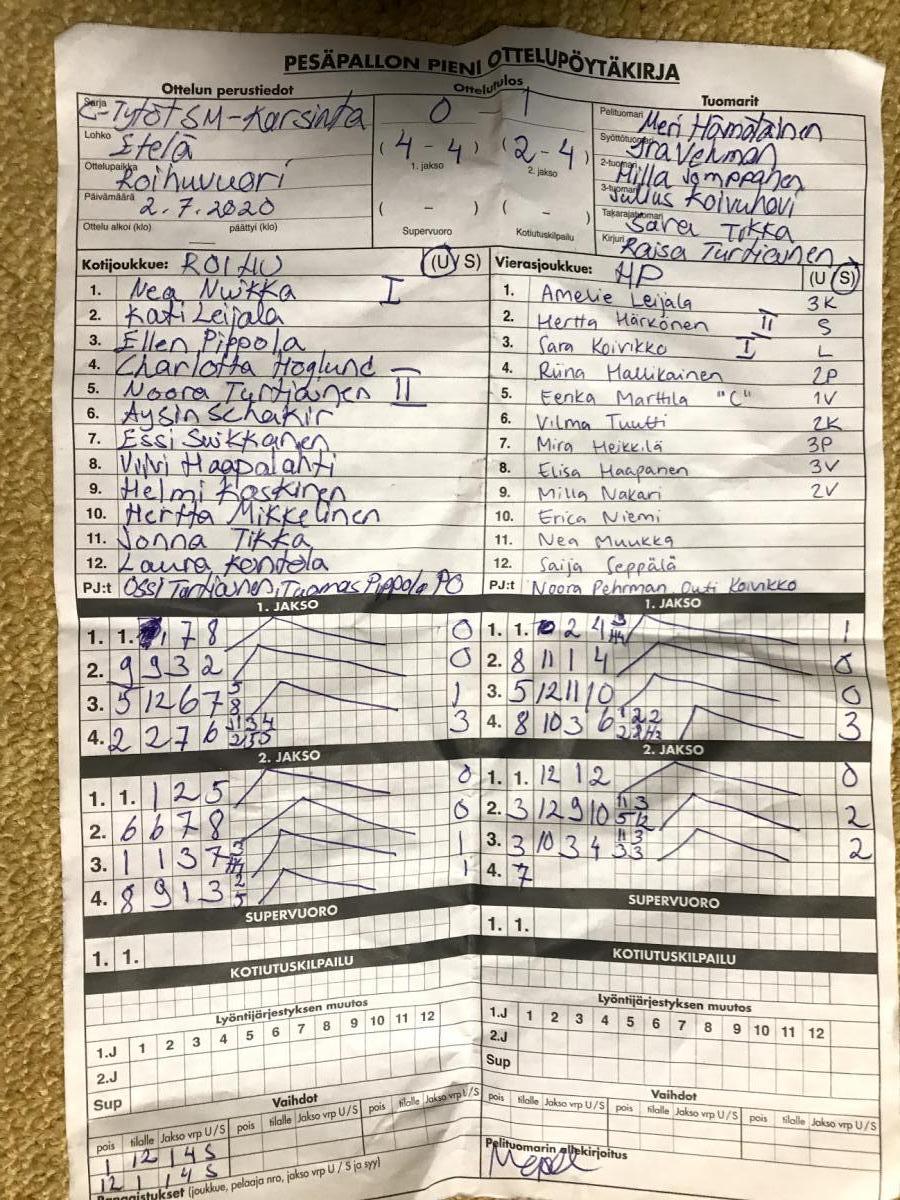 PESÄPALLON PIENI OTTELUPÖYTÄKIRJA
Ottelun perustiedot
Ottelutulos
Tuomarit
Sarja C-Tytöt SM-Karsinta
0 - 1
Pelituomari Meri Hämäläinen
Lohko Etelä
( 4 - 4 ) ( 2 - 4 )
1. jakso 2. jakso
Syöttötuomari
2-tuomari Milla
Ottelupaikka Roihuvuari
3-tuomari Koivuhovi
Päivämäärä 2.7.2020
( - ) ( - )
Takarajatuomari Sara Tikka
Ottelu alkoi (klo) päättyi (klo)
Supervuoro Kotiutuskilpailu
Kirjuri Raisa Turtiainen
Kotijoukkue: ROIHU (U/S)
1. Nea Nuikka I
2. Kati Leijala
3. Ellen Pippola
4. Charlotta Höglund
5. Noora Turtiainen II
6. Aysin Schakir
7. Essi Suikkanen
8. Viivi Haapalahti
9. Helmi Kaskinen
10. Hertta Mikkelinen
11. Jonna Tikka
12. Laura Kontola
PJ:t Ossi Turtiainen, Tuomas Pippola PO
Vierasjoukkue: HP (U/S)
1. Amelie Leijala 3K
2. Hertta Härkönen II S
3. Sara Koivikko I L
4. Riina Hallikainen 2P
5. Eenka Marttila "C" 1V
6. Vilma Tuutti 2K
7. Mira Heikkilä 3P
8. Elisa Haapanen 3V
9. Milla Nakari 2V
10. Erica Niemi
11. Nea Muukka
12. Saija Seppälä
PJ:t Noora Pehrman Outi Koivikko
1. JAKSO
1. 1. 7 8 0
2. 9 9 3 2 0
3. 5 12 6 7 5 8 1
4. 2 2 7 6 3
1. JAKSO
1. 1. 2 4 1
2. 8 11 1 4 0
3. 5 12 11 10 0
4. 8 10 3 6 3
2. JAKSO
1. 1. 1 2 5 0
2. 6 6 7 8 0
3. 1 1 3 7 1
4. 8 9 1 3 2 5 1
2. JAKSO
1. 1. 12 1 2 0
2. 3 12 9 10 11 3 5 12 2
3. 3 10 3 4 11 3 3 3 2
4. 7
SUPERVUORO
1. 1.
SUPERVUORO
1. 1.
KOTIUTUSKILPAILU
KOTIUTUSKILPAILU
Lyöntijärjestyksen muutos
1.J 1 2 3 4 5 6 7 8 9 10 11 12
2.J
Sup
Lyöntijärjestyksen muutos
1.J 1 2 3 4 5 6 7 8 9 10 11 12
2.J
Sup
Vaihdot
pois tilalle Jakso vrp U/S pois tilalle Jakso vrp U/S pois tilalle Jakso vrp U/S
1 12 1 4 S
12 1 1 4 S
Vaihdot
pois tilalle Jakso vrp U/S pois tilalle Jakso vrp U/S pois tilalle Jakso vrp U/S
Pelituomarin allekirjoitus
Rangaistukset (joukkue, pelaaja nro, jakso vrp U / S ja syy)